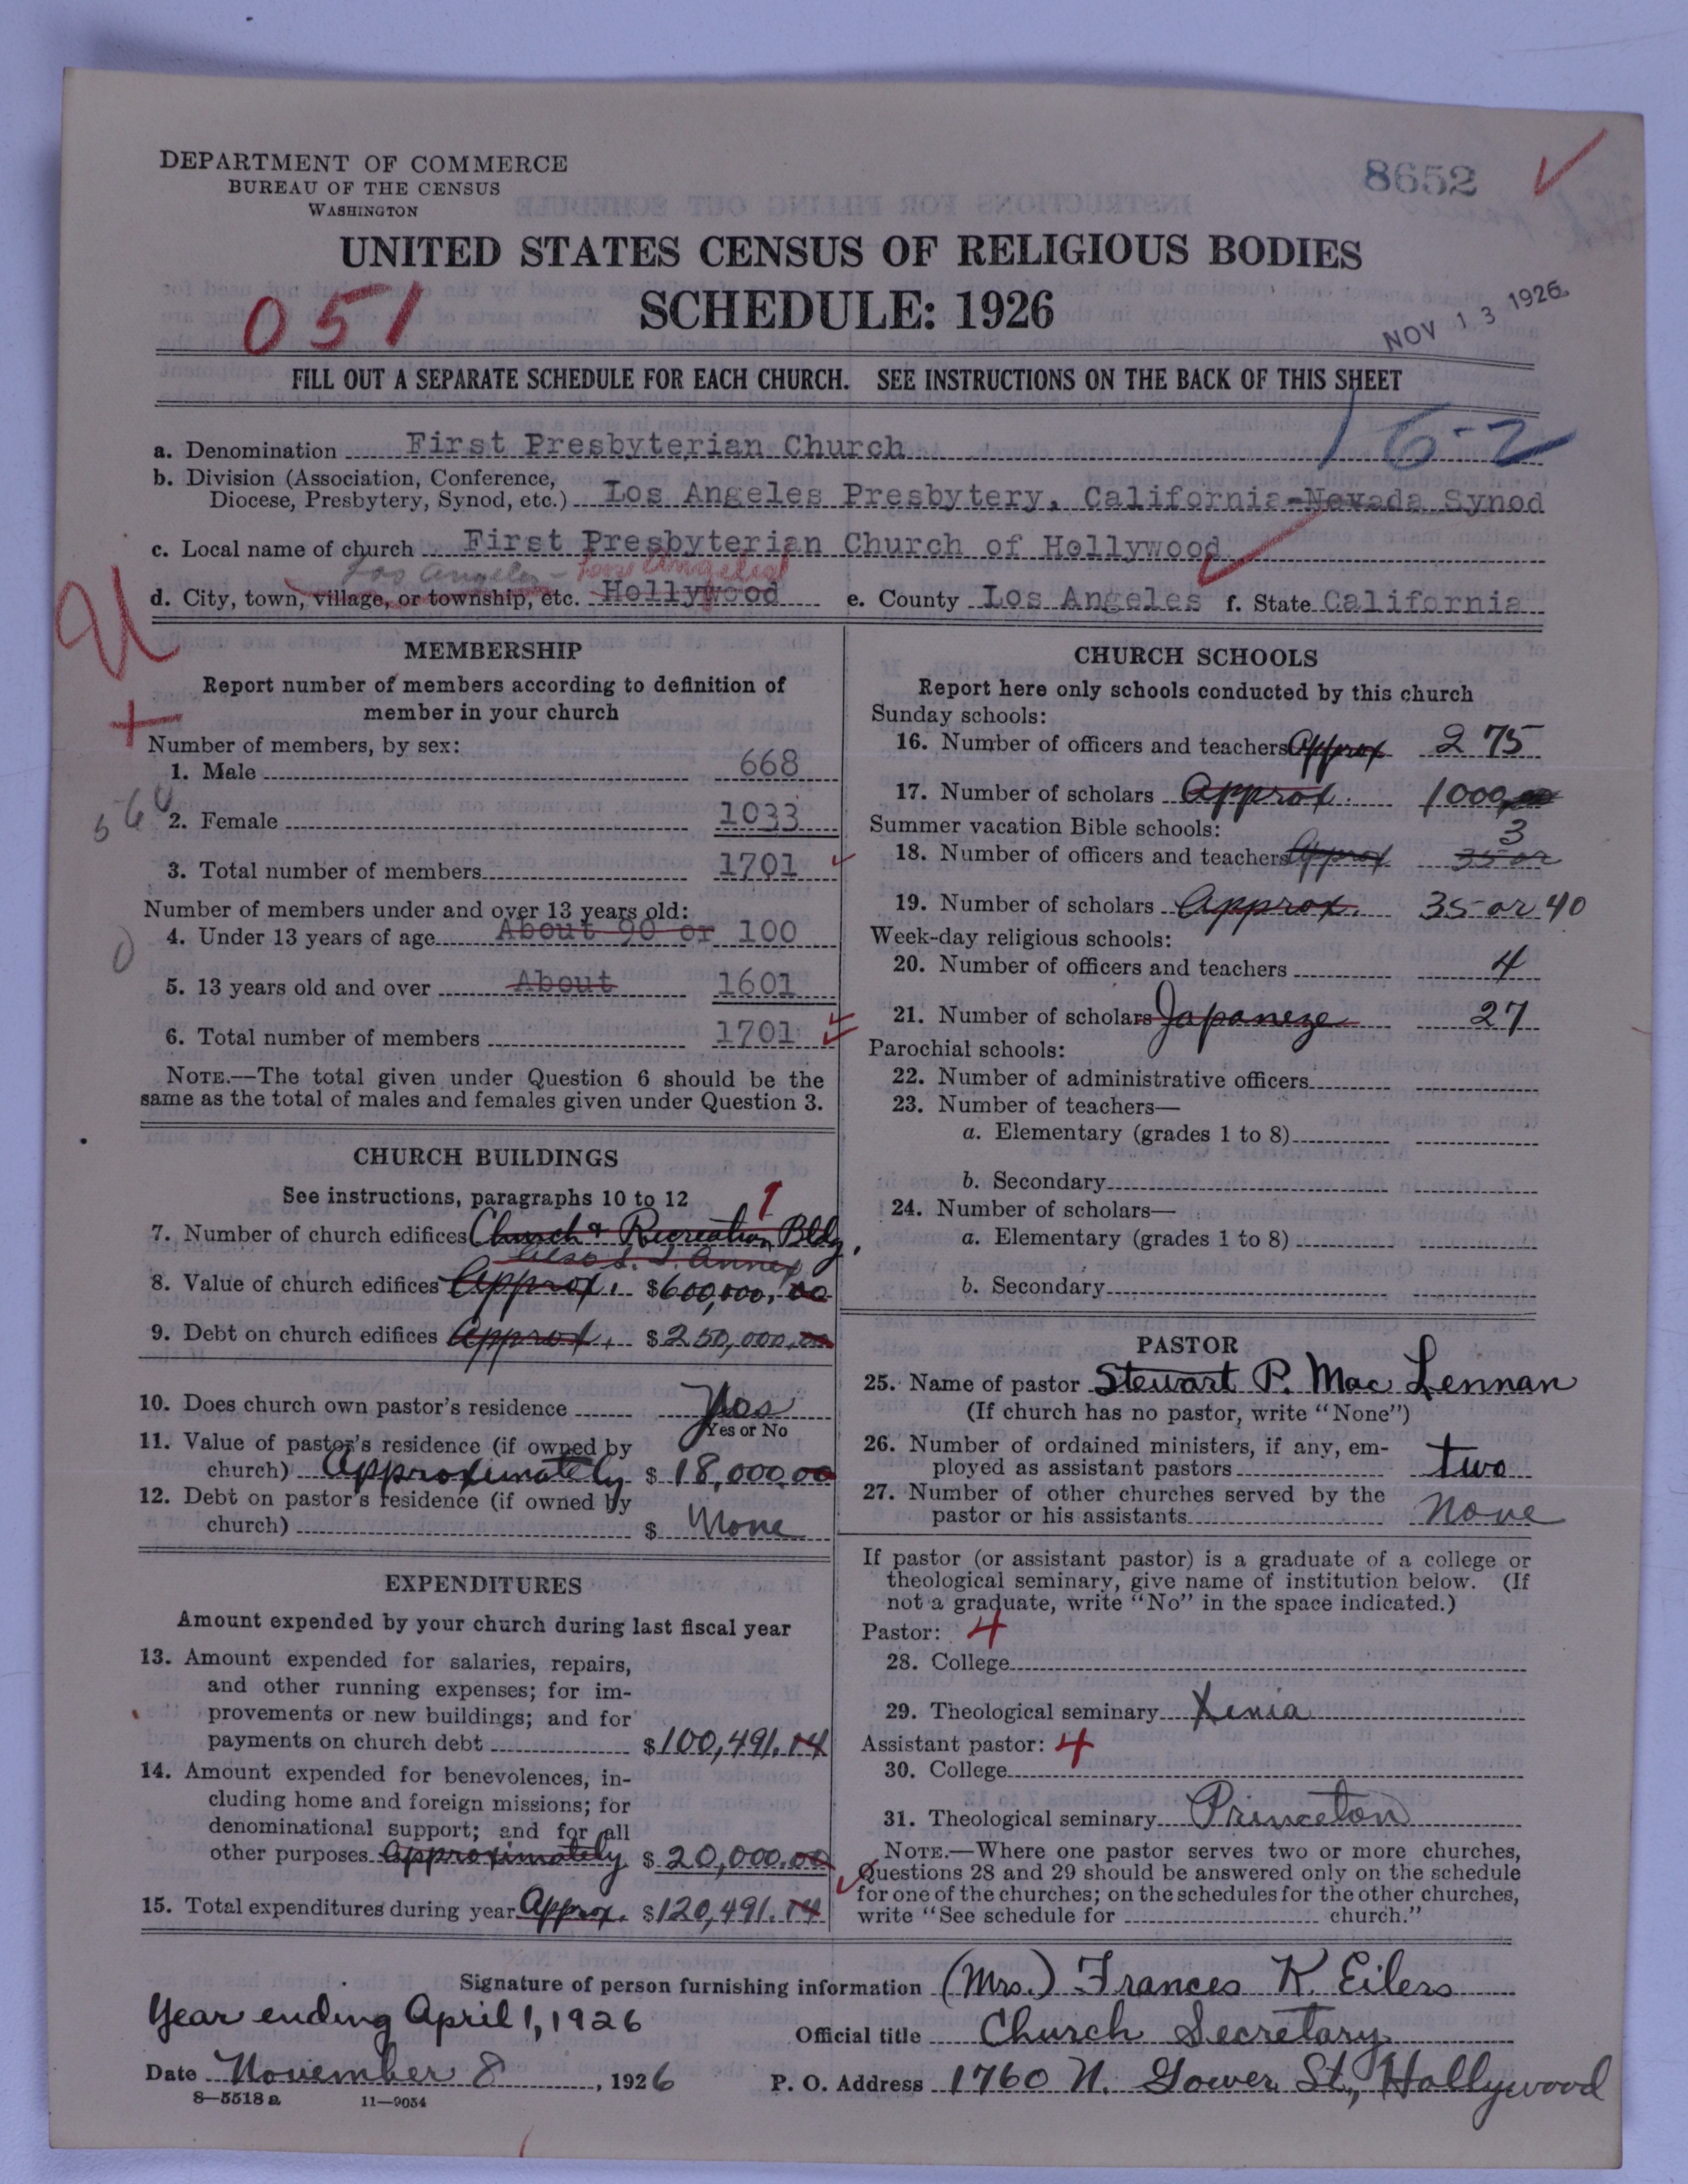 DEPARTMENT OF COMMERCE
BUREAU OF THE CENSUS
WASHINGTON
8652
UNITED STATES CENSUS OF RELIGIOUS BODIES
SCHEDULE: 1926
051
NOV 13 1926
FILL OUT A SEPARATE SCHEDULE FOR EACH CHURCH. SEE INSTRUCTIONS ON THE BACK OF THIS SHEET
16-2
a. Denomination First Presbyterian Church
b. Division (Association, Conference,
Diocese, Presbytery, Synod, etc.) Los Angeles Presbytery, California-Nevada Synod
c. Local name of church First Presbyterian Church of Hollywood
Los Angeles - Los Angeles
d. City, town, village, or township, etc. Hollywood e. County Los Angeles f. State California
MEMBERSHIP
Report number of members according to definition of
member in your church
Number of members, by sex:
1. Male 668
2. Female 1033
3. Total number of members 1701
Number of members under and over 13 years old:
4. Under 13 years of age About 90 or 100
5. 13 years old and over About 1601
6. Total number of members 1701
NOTE.—The total given under Question 6 should be the
same as the total of males and females given under Question 3.
CHURCH BUILDINGS
See instructions, paragraphs 10 to 12
1
7. Number of church edifices Church & Recreation Bldg.
also S. S. Annex
8. Value of church edifices Approx. $600,000.00
9. Debt on church edifices Approx. $250,000.00
10. Does church own pastor's residence Yes
Yes or No
11. Value of pastor's residence (if owned by
church) Approximately $18,000.00
12. Debt on pastor's residence (if owned by
church) $ None
EXPENDITURES
Amount expended by your church during last fiscal year
13. Amount expended for salaries, repairs,
and other running expenses; for im-
provements or new buildings; and for
payments on church debt $100,491.14
14. Amount expended for benevolences, in-
cluding home and foreign missions; for
denominational support; and for all
other purposes Approximately $20,000.00
15. Total expenditures during year Approx. $120,491.14
CHURCH SCHOOLS
Report here only schools conducted by this church
Sunday schools:
16. Number of officers and teachers Approx 275
17. Number of scholars Approx. 1000.00
Summer vacation Bible schools:
3
18. Number of officers and teachers Approx 35 or
19. Number of scholars Approx. 35 or 40
Week-day religious schools:
20. Number of officers and teachers 4
21. Number of scholars Japaneze 27
Parochial schools:
22. Number of administrative officers
23. Number of teachers—
a. Elementary (grades 1 to 8)
b. Secondary
24. Number of scholars—
a. Elementary (grades 1 to 8)
b. Secondary
PASTOR
25. Name of pastor Stewart P. Mac Lennan
(If church has no pastor, write "None")
26. Number of ordained ministers, if any, em-
ployed as assistant pastors two
27. Number of other churches served by the
pastor or his assistants None
If pastor (or assistant pastor) is a graduate of a college or
theological seminary, give name of institution below. (If
not a graduate, write "No" in the space indicated.)
Pastor: 4
28. College
29. Theological seminary Xenia
Assistant pastor: 4
30. College
31. Theological seminary Princeton
NOTE.—Where one pastor serves two or more churches,
Questions 28 and 29 should be answered only on the schedule
for one of the churches; on the schedules for the other churches,
write "See schedule for church."
Signature of person furnishing information (Mrs.) Frances K. Eilers
Year ending April 1, 1926
Official title Church Secretary
Date November 8, 1926
P. O. Address 1760 N. Gower St., Hollywood
8—5518 a 11—9054